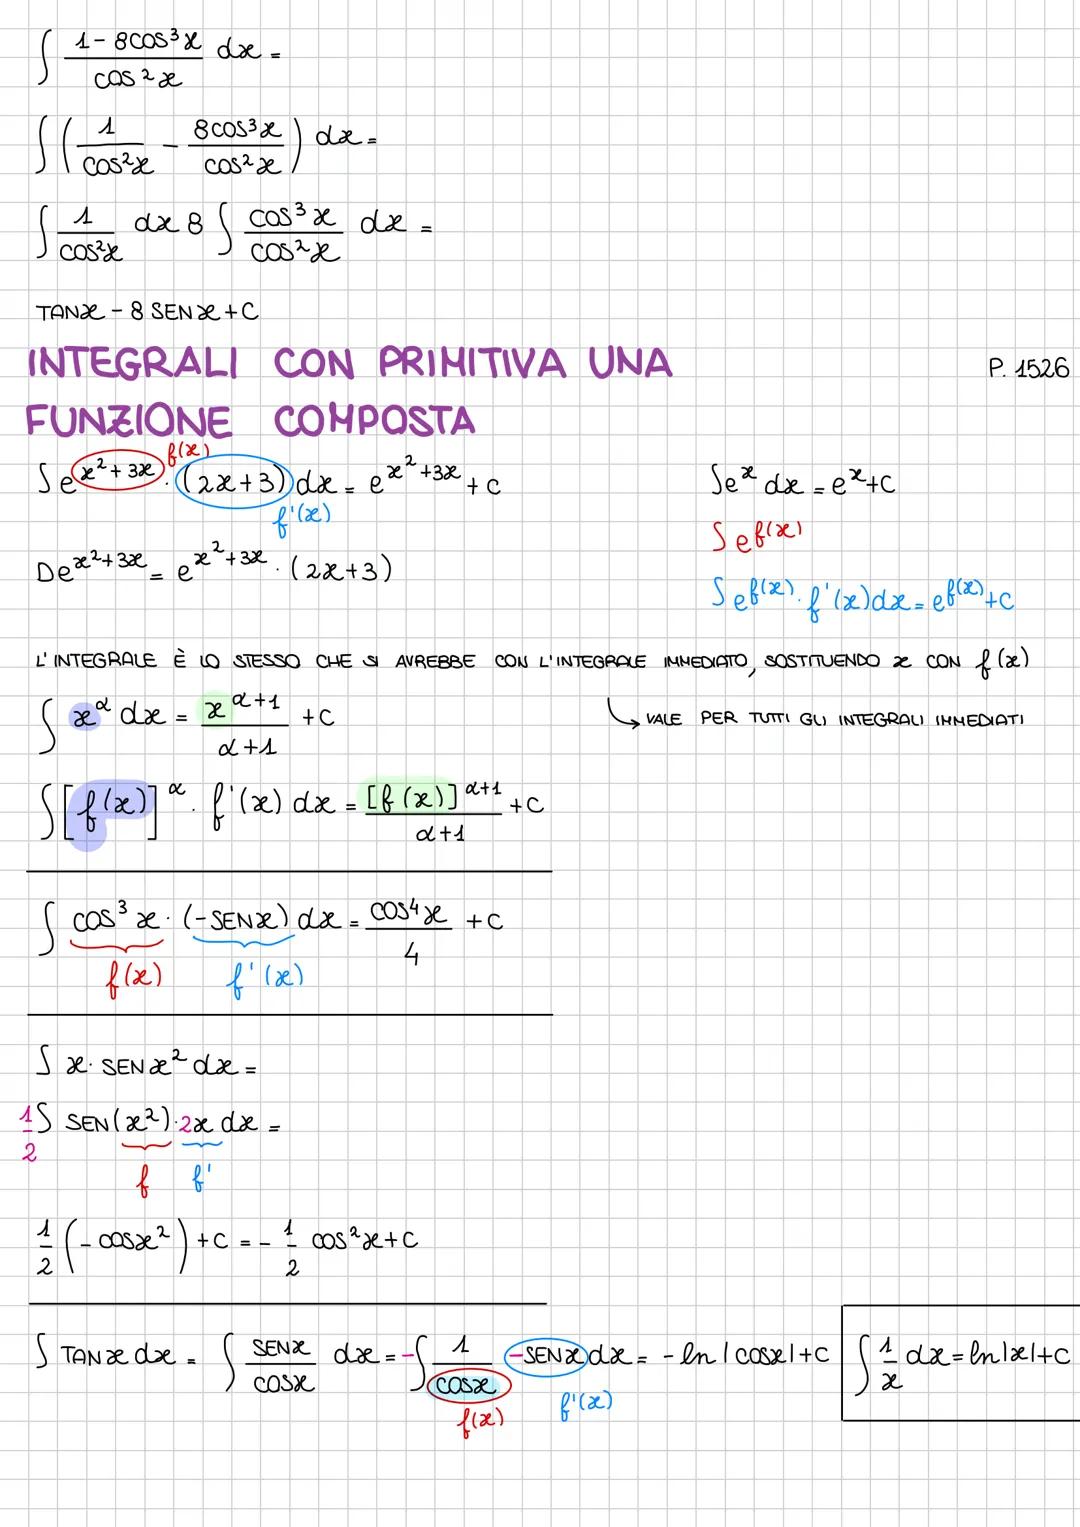 ∫ (1-8cos³x)/(cos²x) dx =
∫ (1/(cos²x) - (8cos³x)/(cos²x)) dx =
∫ 1/(cos²x) dx 8 ∫ (cos³x)/(cos²x) dx =
TANx - 8 SENx + C
INTEGRALI CON PRIMITIVA UNA P. 1526
FUNZIONE COMPOSTA
f(x)
∫e^(x²+3x) · (2x+3) dx = e^(x²+3x) + C ∫e^x dx = e^x + C
f'(x) ∫e^f(x)
De^(x²+3x) = e^(x²+3x) · (2x+3) ∫e^f(x) · f'(x) dx = e^f(x) + C
L'INTEGRALE È LO STESSO CHE SI AVREBBE CON L'INTEGRALE IMMEDIATO, SOSTITUENDO x CON f(x)
∫ x^α dx = (x^(α+1))/(α+1) + C ↳ VALE PER TUTTI GLI INTEGRALI IMMEDIATI
∫ [f(x)]^α · f'(x) dx = ([f(x)]^(α+1))/(α+1) + C
∫ cos³x · (-SENx) dx = (cos⁴x)/4 + C
f(x) f'(x)
∫ x · SENx² dx =
1/2 ∫ SEN(x²) · 2x dx =
f f'
1/2 (-cosx²) + C = - 1/2 cos²x + C
∫ TANx dx = ∫ (SENx)/(cosx) dx = -∫ 1/(cosx) -SENx dx = - ln |cosx| + C ∫ 1/x dx = ln|x| + C
f(x) f'(x)